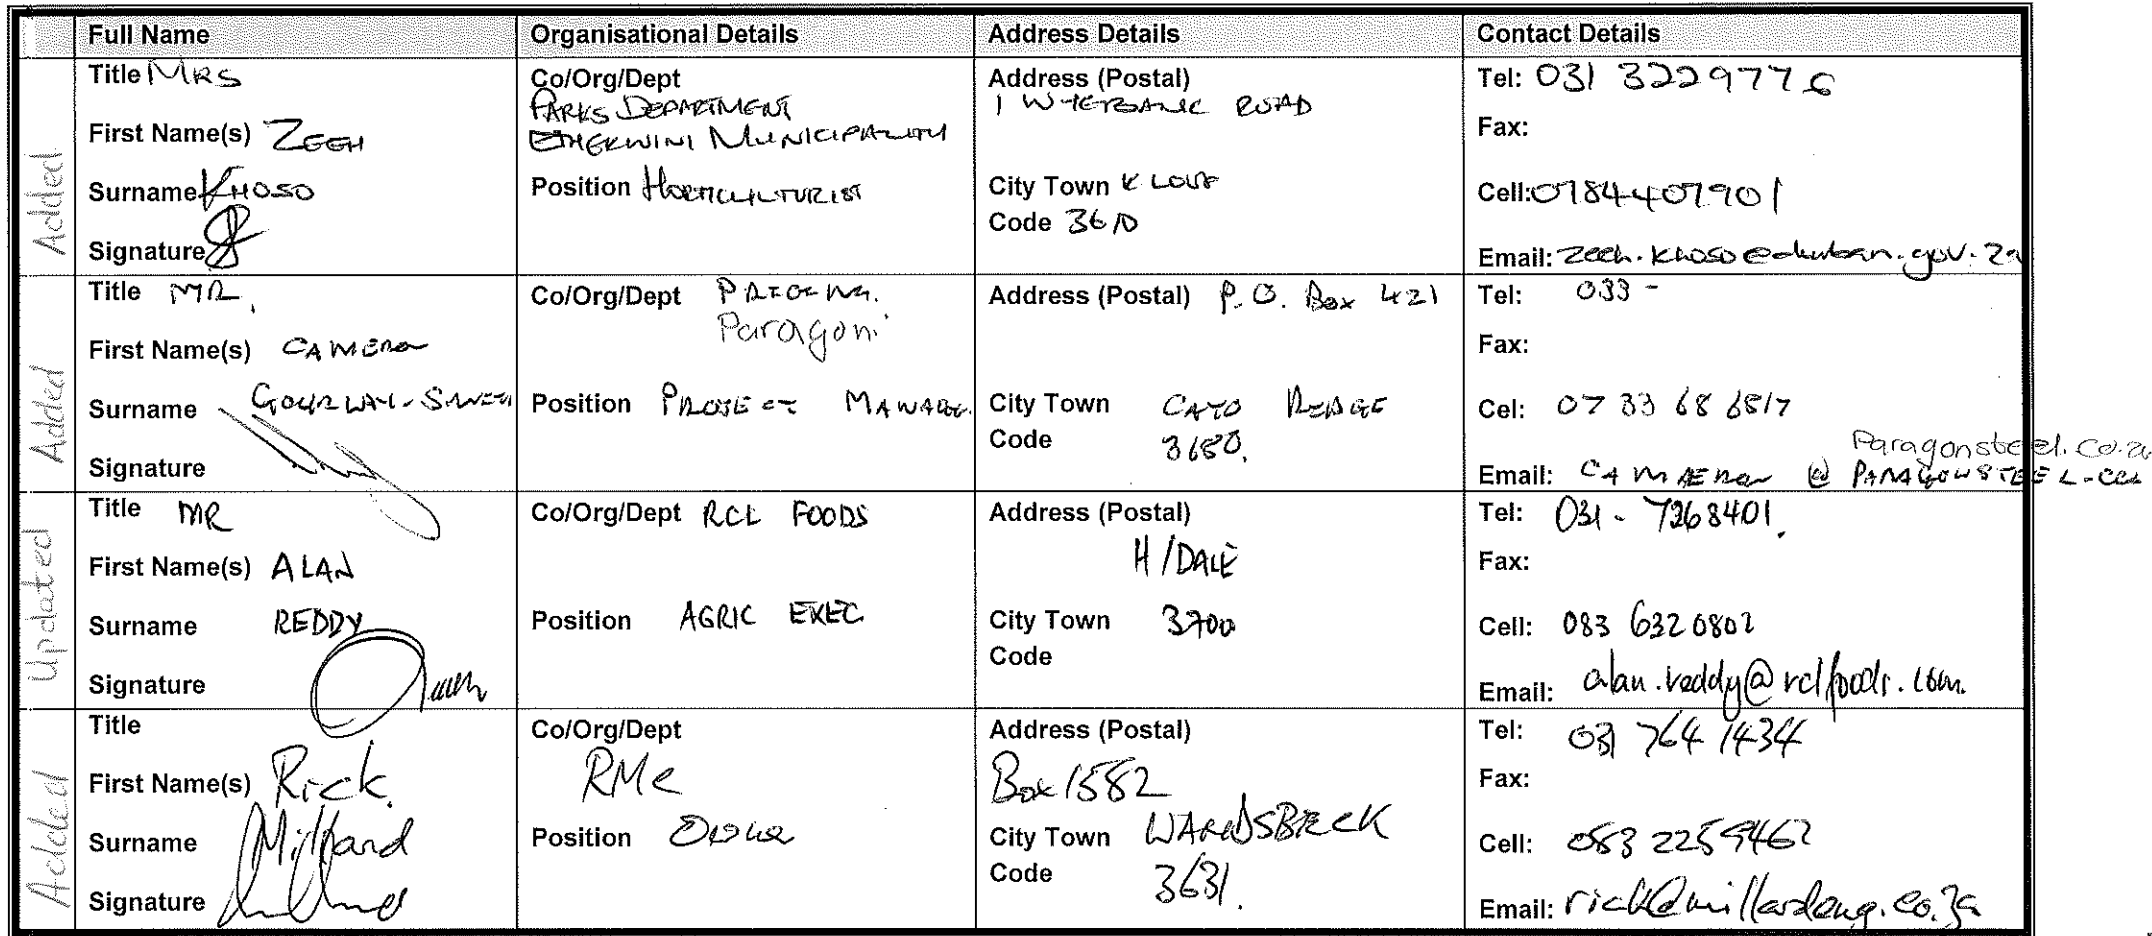 Full Name Organisational Details Address Details Contact Details
Added
Title MRS
First Name(s) ZEEH
Surname KHOSO
Signature
Co/Org/Dept
PARKS DEPARTMENT
ETHEKWINI MUNICIPALITY
Position HORTICULTURIST
Address (Postal)
1 WYEBANK ROAD
City Town KLOOF
Code 3610
Tel: 031 3229776
Fax:
Cell: 0784407901
Email: zeeh.khoso@durban.gov.za
Added
Title MR.
First Name(s) CAMERON
Surname GOURLAY-
Signature
Co/Org/Dept
Paragon
Position PROJECT MANAGER
Address (Postal) P.O. Box 421
City Town CATO RIDGE
Code 3680.
Tel: 033 -
Fax:
Cel: 07 33 68 6817
Paragonsteel.co.za
Email: CAMERON @ PARAGONSTEEL.CO.
Updated
Title MR
First Name(s) ALAN
Surname REDDY
Signature
Co/Org/Dept RCL FOODS
Position AGRIC EXEC
Address (Postal)
H/DALE
City Town 3700
Code
Tel: 031 - 7268401.
Fax:
Cell: 083 6320802
Email: alan.reddy@rclfoods.com.
Added
Title
First Name(s) Rick
Surname Millard
Signature
Co/Org/Dept
RMe
Position
Address (Postal)
Box 1582
City Town
Code 3631.
Tel: 031 764 1434
Fax:
Cell: 083 2259462
Email: rick@millardeng.co.za